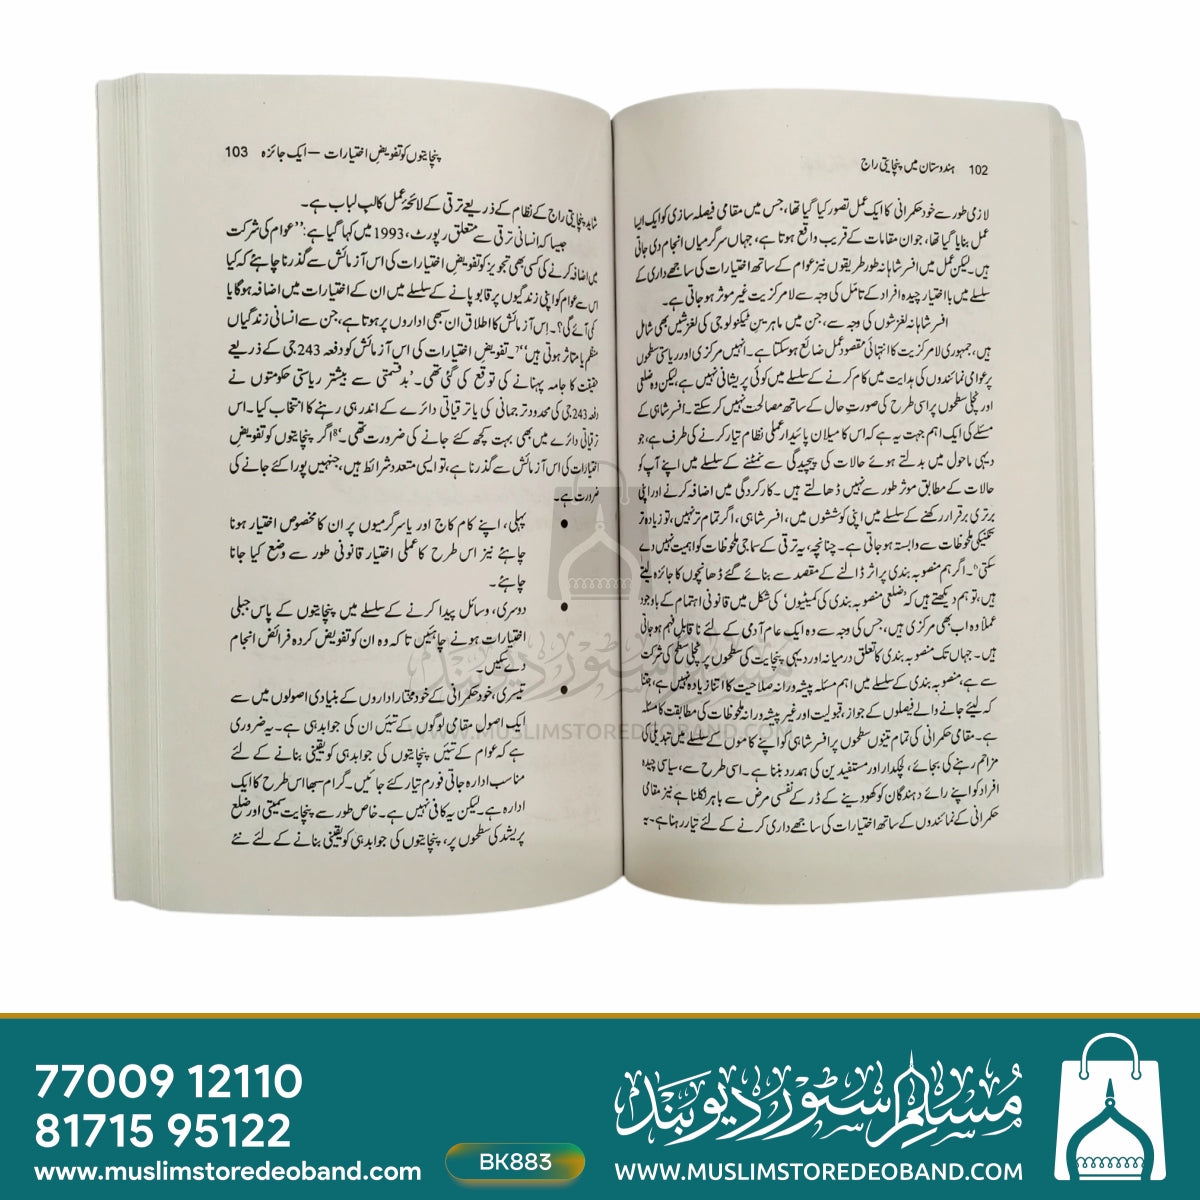 102 ہندوستان میں پنچایتی راج
لازمی طور سے خود حکمرانی کا ایک عمل تصور کیا گیا تھا، جس میں مقامی فیصلہ سازی کو ایک ایسا
عمل بنایا گیا تھا، جو ان مقامات کے قریب واقع ہوتا ہے، جہاں سرگرمیاں انجام دی جاتی
ہیں۔ لیکن عمل میں افسر شاہانہ طور طریقوں نیز عوام کے ساتھ اختیارات کی ساجھے داری کے
سلسلے میں با اختیار چیدہ افراد کے تامل کی وجہ سے لا مرکزیت غیر موثر ہو جاتی ہے۔
افسر شاہانہ لغزشوں کی وجہ سے، جن میں ماہرین ٹیکنولوجی کی لغزشیں بھی شامل
ہیں، جمہوری لا مرکزیت کا انتہائی مقصود عمل ضائع ہو سکتا ہے۔ انہیں مرکزی اور ریاستی سطحوں
پر عوامی نمائندوں کی ہدایت میں کام کرنے کے سلسلے میں کوئی پریشانی نہیں ہے، لیکن وہ ضلعی
اور نچلی سطحوں پر اسی طرح کی صورت حال کے ساتھ مصالحت نہیں کر سکتے۔ افسر شاہی کے
مسئلے کی ایک اہم جہت یہ ہے کہ اس کا میلان پائیدار عملی نظام تیار کرنے کی طرف ہے، جو
دیہی ماحول میں بدلتے ہوئے حالات کی پیچیدگی سے نمٹنے کے سلسلے میں اپنے آپ کو
حالات کے مطابق موثر طور سے نہیں ڈھالتے ہیں۔ کارکردگی میں اضافہ کرنے اور اپنی
برتری برقرار رکھنے کے سلسلے میں اپنی کوششوں میں، افسر شاہی، اگر تمام تر نہیں، تو زیادہ تر
تکنیکی ملحوظات سے وابستہ ہو جاتی ہے۔ چنانچہ، یہ ترقی کے سماجی ملحوظات کو اہمیت نہیں دے
سکتی۔ اگر ہم منصوبہ بندی پر اثر ڈالنے کے مقصد سے بنائے گئے ڈھانچوں کا جائزہ لیتے
ہیں، تو ہم دیکھتے ہیں کہ 'ضلعی منصوبہ بندی کی کمیٹیوں' کی شکل میں قانونی اہتمام کے باوجود
عملاً وہ اب بھی مرکزی ہیں، جس کی وجہ سے وہ ایک عام آدمی کے لئے نا قابل فہم ہو جاتی
ہیں۔ جہاں تک منصوبہ بندی کا تعلق درمیانہ اور دیہی پنچایت کی سطحوں پر نچلی سطح کی شرکت
سے ہے، منصوبہ بندی کے سلسلے میں اہم مسئلہ پیشہ ورانہ صلاحیت کا اتنا زیادہ نہیں ہے، جتنا
کہ لیئے جانے والے فیصلوں کے جواز، قبولیت اور غیر پیشہ ورانہ ملحوظات کی مطابقت کا مسئلہ
ہے۔ مقامی حکمرانی کی تمام تینوں سطحوں پر افسر شاہی کو اپنے کاموں کے سلسلے میں تبدیلی کی
مزاحم رہنے کی بجائے، لچکدار اور مستفیدین کی ہمدرد بننا ہے۔ اسی طرح سے، سیاسی چیدہ
افراد کو اپنے رائے دہندگان کو کھو دینے کے ڈر کے نفسی مرض سے باہر نکلنا ہے نیز مقامی
حکمرانی کے نمائندوں کے ساتھ اختیارات کی ساجھے داری کرنے کے لئے تیار رہنا ہے۔ یہ
پنچایتوں کو تفویض اختیارات – ایک جائزہ 103
شاید پنچایتی راج کے نظام کے ذریعے ترقی کے لائحۂ عمل کا لب لباب ہے۔
جیسا کہ انسانی ترقی سے متعلق رپورٹ، 1993 میں کہا گیا ہے: ''عوام کی شرکت
میں اضافہ کرنے کی کسی بھی تجویز کو تفویض اختیارات کی اس آزمائش سے گذرنا چاہئے کہ کیا
اس سے عوام کو اپنی زندگیوں پر قابو پانے کے سلسلے میں ان کے اختیارات میں اضافہ ہوگا یا
کمی آئے گی؟۔ اس آزمائش کا اطلاق ان سبھی اداروں پر ہوتا ہے، جن سے انسانی زندگیاں
منظم یا متاثر ہوتی ہیں''7۔ تفویض اختیارات کی اس آزمائش کو دفعہ 243 جی کے ذریعے
حقیقت کا جامہ پہنانے کی توقع کی گئی تھی۔ 'بد قسمتی سے بیشتر ریاستی حکومتوں نے
دفعہ 243 جی کی محدود ترجمانی کی یا ترقیاتی دائرے کے اندر ہی رہنے کا انتخاب کیا۔ اس
ترقیاتی دائرے میں بھی بہت کچھ کئے جانے کی ضرورت تھی۔'8 اگر پنچایتوں کو تفویض
اختیارات کی اس آزمائش سے گذرنا ہے، تو ایسی متعدد شرائط ہیں، جنہیں پورا کئے جانے کی
ضرورت ہے۔
• پہلی، اپنے کام کاج اور یا سرگرمیوں پر ان کا مخصوص اختیار ہونا
چاہئے نیز اس طرح کا عملی اختیار قانونی طور سے وضع کیا جانا
چاہئے۔
• دوسری، وسائل پیدا کرنے کے سلسلے میں پنچایتوں کے پاس جبلی
اختیارات ہونے چاہئیں تاکہ وہ ان کو تفویض کردہ فرائض انجام
دے سکیں۔
• تیسری، خود حکمرانی کے خود مختار اداروں کے بنیادی اصولوں میں سے
ایک اصول مقامی لوگوں کے تئیں ان کی جوابدہی ہے۔ یہ ضروری
ہے کہ عوام کے تئیں پنچایتوں کی جوابدہی کو یقینی بنانے کے لئے
مناسب ادارہ جاتی فورم تیار کئے جائیں۔ گرام سبھا اس طرح کا ایک
ادارہ ہے۔ لیکن یہ کافی نہیں ہے۔ خاص طور سے پنچایت سمیتی اور ضلع
پریشد کی سطحوں پر، پنچایتوں کی جوابدہی کو یقینی بنانے کے لئے نئے
مسلم سٹور دیوبند
WWW.MUSLIMSTOREDEOBAND.COM
77009 12110
81715 95122
www.muslimstoredeoband.com
BK883
مسلم سٹور دیوبند
WWW.MUSLIMSTOREDEOBAND.COM